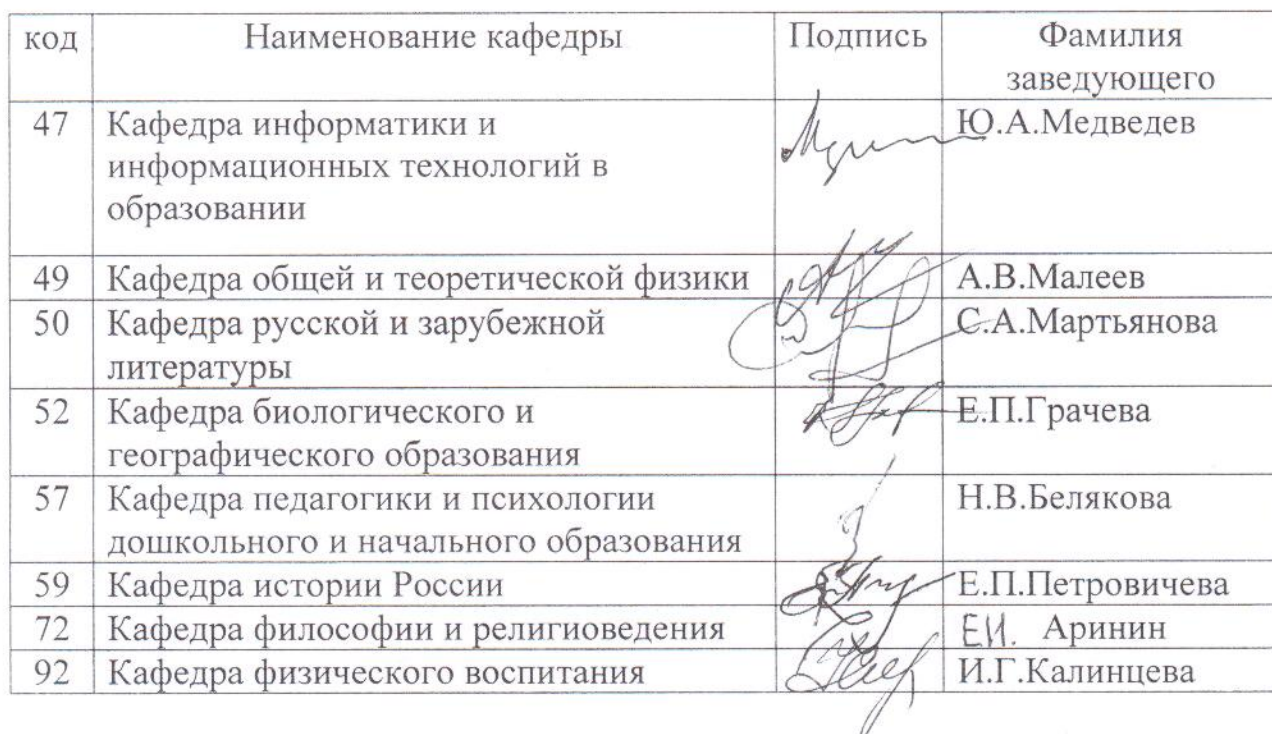 код Наименование кафедры Подпись Фамилия
заведующего
47 Кафедра информатики и Ю.А.Медведев
информационных технологий в
образовании
49 Кафедра общей и теоретической физики А.В.Малеев
50 Кафедра русской и зарубежной С.А.Мартьянова
литературы
52 Кафедра биологического и Е.П.Грачева
географического образования
57 Кафедра педагогики и психологии Н.В.Белякова
дошкольного и начального образования
59 Кафедра истории России Е.П.Петровичева
72 Кафедра философии и религиоведения Е.И. Аринин
92 Кафедра физического воспитания И.Г.Калинцева